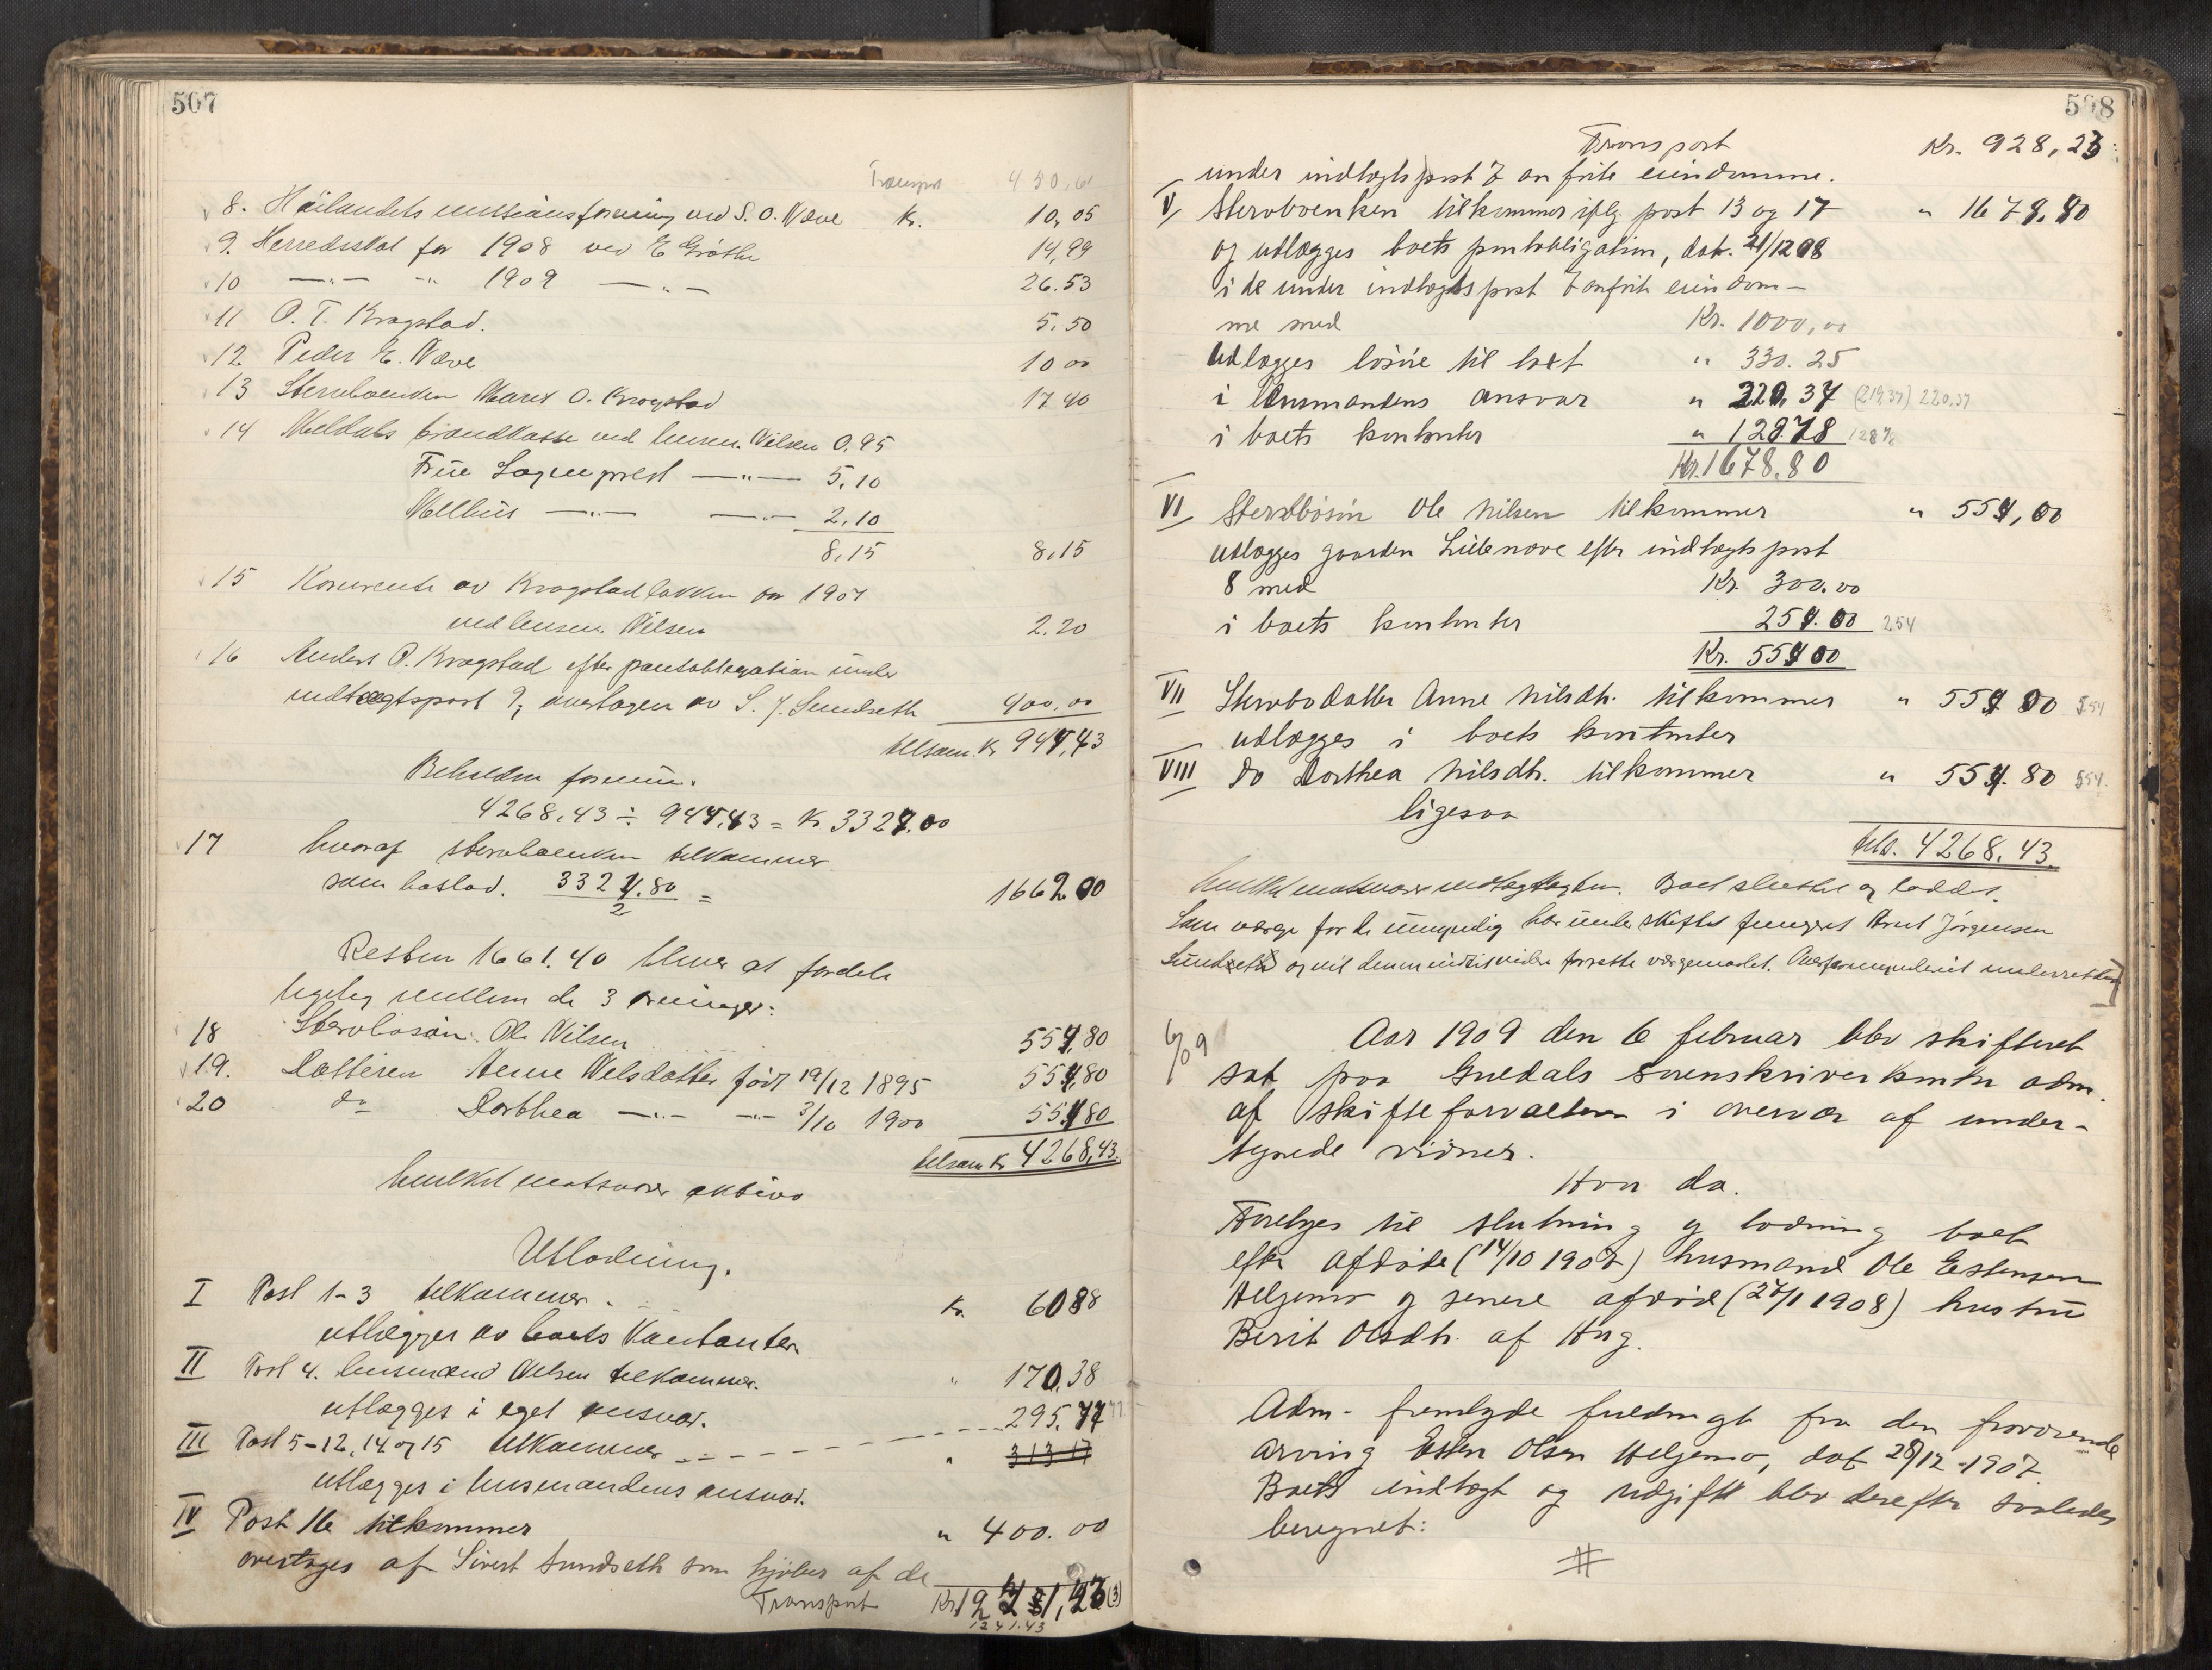 507
Transport 450,61
8. Höilandets missionsforening ved S. O. Næve Kr. 10,05
9. Herredsskat for 1908 ved E Gröthe 14,99
10 —"— " 1909 —"— 26.53
11 O. T. Kragstad. 5.50
12 Peder E. Næve 10 00
13 Stervboenken Marit O. Kragstad 17 40
14 Meldals brandkasse ved lensm. Nilsen 0.95
Frue Sogneprest —"— 5.10
Melhus —"— —"— 2.10
8,15 8,15
15 Kornrente av Kragstadløkken for 1907
ved lensm. Nilsen 2.20
16 Anders O. Kragstad efter pantobligation under
indtægtspost 9, overtagen av S. J. Sundseth 400,00
tilsam. Kr 944,43
Beholden formue.
4268,43 ÷ 944,43 = Kr 3324.00
17 hvoraf stervboenken tilkommer
som boslod. 3324.80 / 2 = 1662 00
Resten 1661.40 bliver at fordele
ligelig mellem de 3 arvinger:
18 Stervbosøn Ole Nilsen 554,80
19. Datteren Anne Nilsdatter født 19/12 1895 554,80
20 do Dorthea —"— —"— 3/10 1900 554 80
tilsam Kr 4268,43.
hvilket motsvarer aktiva
Utlodning.
I Post 1-3 tilkommer Kr. 60 88
utlægges av boets kontanter
II Post 4. lensmand Nilsen tilkommer. " 170,38
utlægges i eget ansvar.
295,77
III Post 5-12, 14 og 15 tilkommer " 313 17
utlægges i lensmandens ansvar.
IV Post 16 tilkommer " 400.00
overtages af Sivert Sundseth som kjøber af de
Transport Kr
1241.43
508
Transport Kr. 928,23
under indtægtspost 7 anførte eiendomme.
V Stervboenken tilkommer iflg. post 13 og 17 " 1679,80
og utlægges boets pantobligation, dat. 21/12 08
i de under indtægtspost 7 anførte eiendom-
me med Kr. 1000,00
Udlægges løsøre til boet " 330.25
i lensmandens ansvar " 220,37 (219,37) 220,37
i boets kontanter " 128.78 128 78
Kr. 1678.80
VI Stervbosøn Ole Nilsen tilkommer " 554,00
utlægges gaarden Lillenæve efter indtægtspost
8 med Kr. 300.00
i boets kontanter 254.00 254
Kr. 554 00
VII Stervbodatter Anne Nilsdtr. tilkommer " 554 00 554
udlægges i boets kontanter
VIII do Dorthea Nilsdtr. tilkommer " 554.80 554.
ligesaa
tils. 4268.43.
hvilket motsvarer indtægten. Boet sluttet og loddet.
Som værge for de umyndige har under skiftet fungeret Arnt Jørgensen
Sundseth og vil denne indtil videre forrette værgemaalet. Overformynderiet underrettes
6/2 09 Aar 1909 den 6 februar blev skifteret
sat paa Guldals sorenskriverkontor adm.
af skifteforvalteren i overvær af under-
tegnede vidner.
Hvor da.
Foretages til slutning og lodning boet
efter afdøde (14/10 1907) husmand Ole Estensen
Helgemo og senere afdøde (27/1 1908) hustru
Berit Olsdtr. af Hog.
Adm. fremlagde fuldmagt fra den fraværende
arving Esten Olsen Helgemo, dat 28/12 - 1907.
Boets indtægt og udgift blev derefter saaledes
beregnet:
#